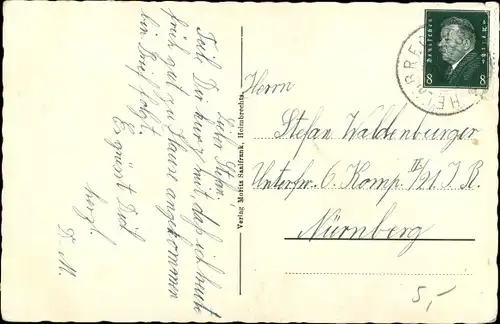 Lieber Stefan!
Teile Dir kurz mit daß ich heute
früh gut zu Hause angekommen
bin Brief folgt.
Es grüsst Dich
herzl.
D. M.
Verlag Moritz Saalfrank, Helmbrechts.
Deutsches Reich
8 8
Herrn
Stefan Waldenburger
Unterfw. 6. Komp. II/21. J. R.
Nürnberg
5,-